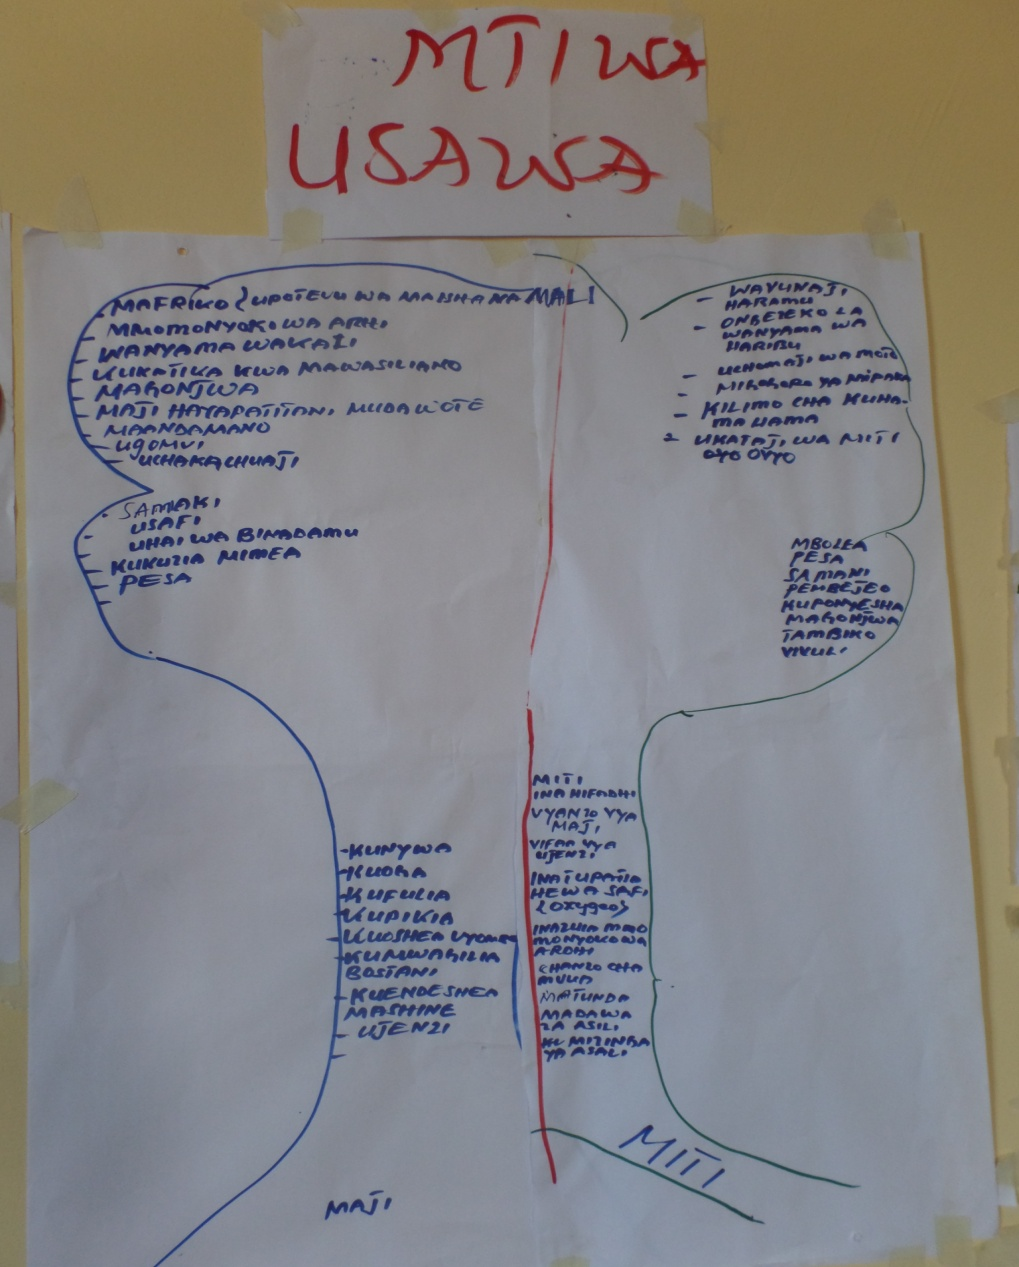 MTI WA
USAWA
MAFRIKO { UPOTEVU WA MAISHA NA MALI
MMOMONYOKO WA ARHI
WANYAMA WAKALI
KUKATIKA KWA MAWASILIANO
MAGONJWA
MAJI HAYAPATITANI MUDA WOTE
MAANDAMANO
UGOMVI
UCHAKACHUAJI
SAMAKI
USAFI
UHAI WA BINADAMU
KUKUZIA MIMEA
PESA
- KUNYWA
- KUOGA
- KUFULIA
- KUPIKIA
KUOSHEA VYOMBO
- KUMWAGILIA
BOSTANI
- KUENDESHEA
MASHINE
- UJENZI
MAJI
- WAVUNAJI
HARAMU
- ONGEZEKO LA
WANYAMA WA
HARIBU
- UCHOMAJI WA MOTO
- MIGOGORO YA MIPAKA
- KILIMO CHA KUHA-
MAHAMA
- UKATAJI WA MITI
OYO OVYO
MBOLEA
PESA
SAMANI
PEMBEJEO
KUPONYESHA
MAGONJWA
TAMBIKO
VIVULI
MITI
INAHIFADHI
VYANZO VYA
MAJI
VIFAA VYA
UJENZI
INATUPATIA
HEWA SAFI
(Oxygen)
INAZUIA MMO
MONYOKO WA
ARDHI
CHANZO CHA
MVUA
MATUNDA
MADAWA
ZA ASILI
KU MIZINGA
YA ASALI
MITI